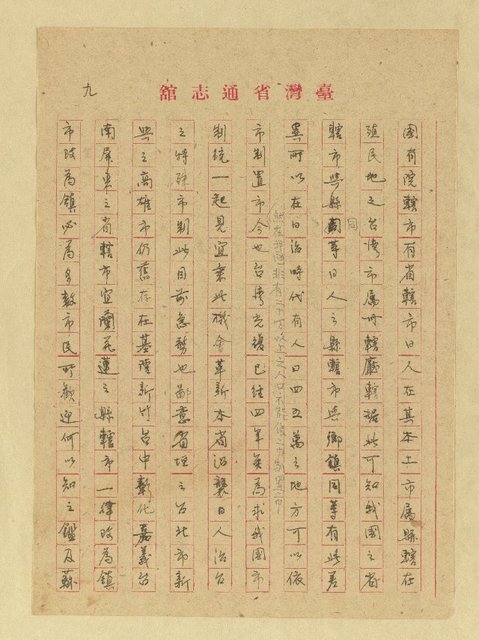 臺灣省通志館
九
國有院轄市有省轄市日人在其本土市屬縣轄在
殖民地之台灣市屬州轄廳轄據此可知我國之省
轄市與縣同等日人之縣轄市與鄉鎮同等有此差
異所以在日治時代有人口四五萬之地方可以依
市制置市今也台灣光復已經四年矣為求我國市
制統一起見宜乘此機會革新本省沿襲日人治台
之特殊市制此目前急務也鄙意省理之台北市新
興之高雄市仍舊存在基隆新竹台中彰化嘉義台
南屏東之省轄市宜蘭花蓮之縣轄市一律改為鎮
市改為鎮必為多數市民所歡迎何以知之鑑及蘇